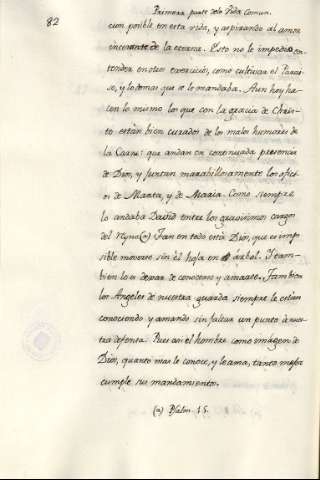 82
Primera parte dela Vida Comun.
cion posible en esta vida, y aspirando al amor
incesante de la eterna. Esto no le impedia en-
tender en otro exercicio, como cultivar el Parai-
so, y lo demas que se le mandaba. Aun hoy ha-
cen lo mismo los que con la gracia de Chris-
to estàn bien curados de los malos humores de
la Carne: que andan en continuada presencia
de Dios, y juntan maravillosamente los ofici-
os de Marta, y de Maria. Como siempre
lo andaba David entre los gravisimos cargos
del Reyno (a) Tan en todo està Dios, que es impo-
sible moverse sin el hoja en arbol. Y tam-
bien lo es dexar de conocerse y amarse. Tambien
los Angeles de nuestra guarda siempre le están
conociendo y amando sin faltar un punto à nues-
tra defensa. Pues asi el hombre como imàgen de
Dios, quanto mas le conoce, y le ama, tanto mejor
cumple sus mandamientos.
(a) Psalm. 15.